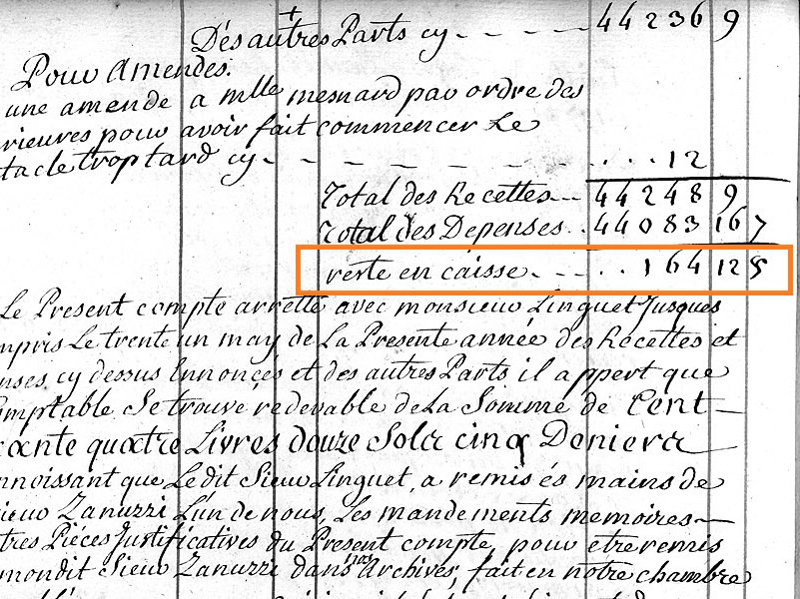 Dés autres Parts cy - - - - 44236 9
Pour Amendes.
une amende a mlle mesnard par ordre des
rieures pour avoir fait commencer Le
tacle trop tard cy - - - - - - - . . . . 12
Total des Recettes - - 44248 9
Total des Depenses . . 44083 16 7
reste en caisse - - - . . . 164 12 5
Le Present compte arretté avec monsieur Linguet Jusques
mpris Le trente un may de La Presente année des Recettes et
nses cy dessus Ennonçés et des autres Parts il appert que
omptable Se trouve redevable de La Somme de Cent
xante quatre Livres douze Sols cinq Deniers
nnoissant que Ledit Sieur Linguet, a remis és mains de
sieur Zanuzzi L'un de nous, Les mandements memoires
tres Piéces Justificatives du Present compte, pour etre remis
mondit Sieur Zanuzzi dans nos Archives, fait en notre chambre